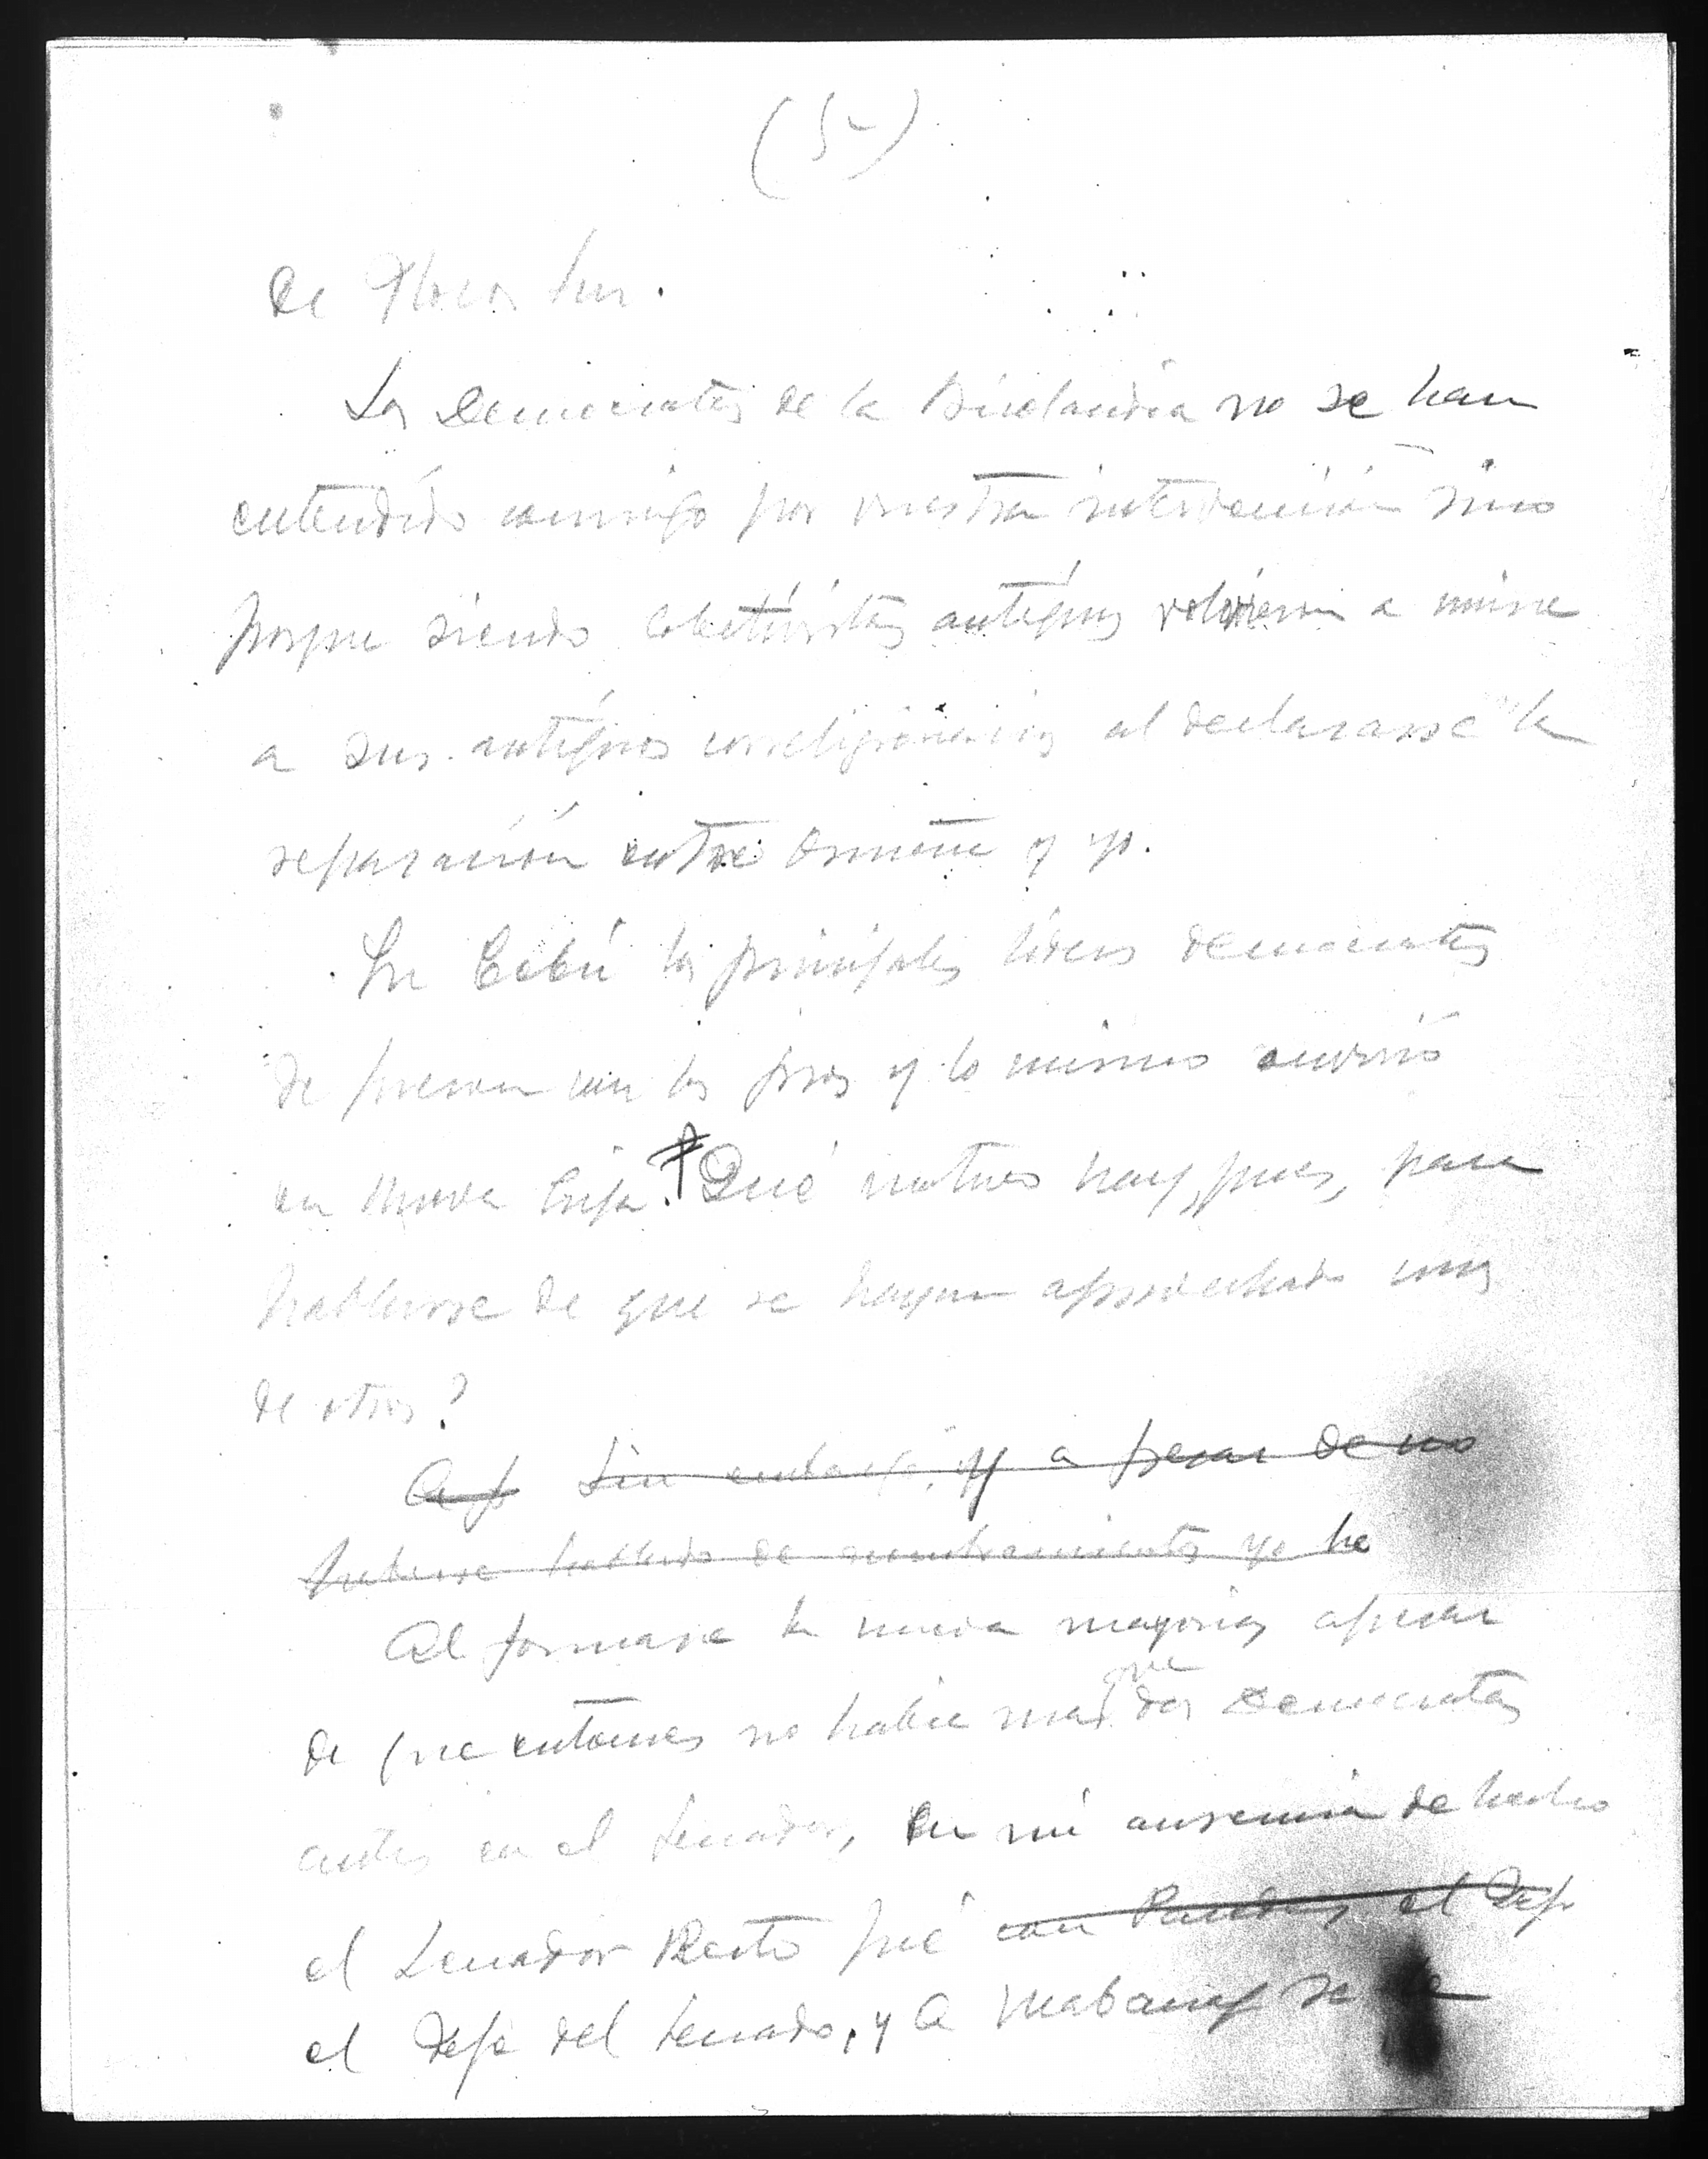 (5)
de Ilocos Sur.
Los Demócratas de la Bisolandia no se han
entendido conmigo por vuestra intervención sino
porque siendo colectivistas antiguos volvieron a unirse
a sus antiguos correligionarios al declararse la
separación entre Osmeña y yo.
En Cebú los principales líderes demócratas
se fueron con los pros y lo mismo ocurrió
en Nueva Ecija. Qué motivos hay, pues, para
hablarse de que se hayan aprovechado unos
de otros?
Sin embargo, y a pesar de no
haberse hablado de nombramientos yo he
Al formarse la nueva mayoria, apesar
de que entonces no habia mas que dos Democratas
antes en el Senado, en mi ausencia de hecho
el Senador Recto fué con el Jefe
el Jefe del Senado, y a Mabanag se le